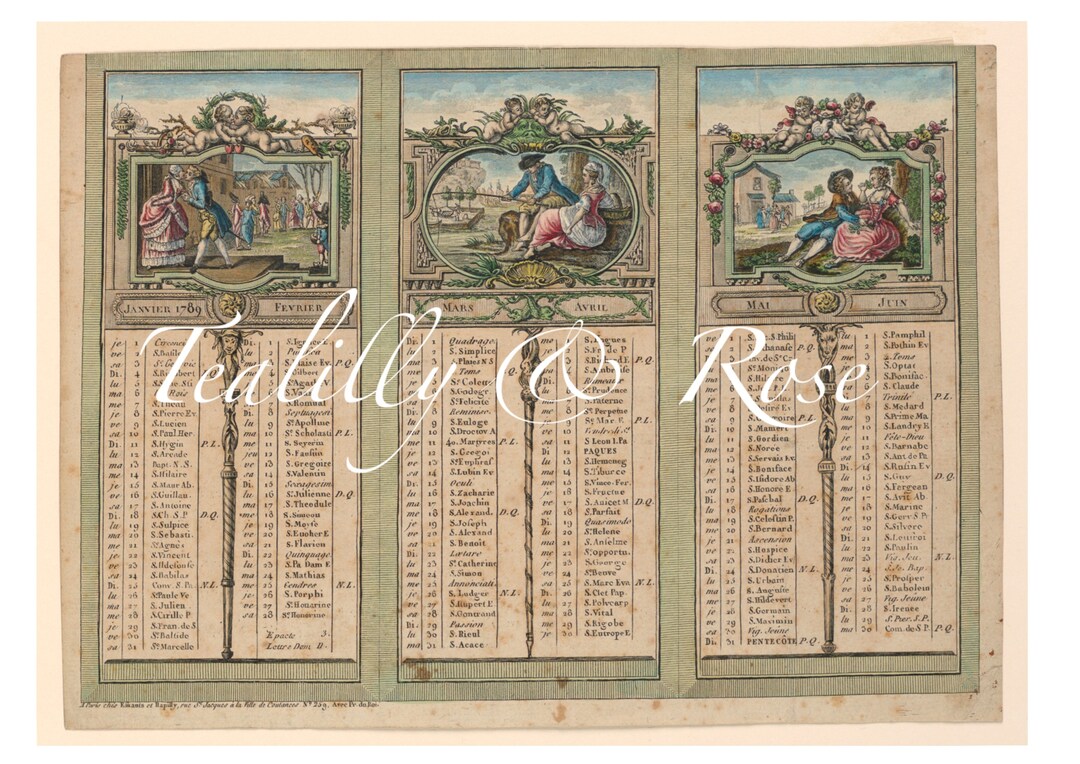 JANVIER 1789
FEVRIER
je 1 Circonci
ve 2 S. Basile
sa 3
Di. 4
lu 5
ma 6 Rois
me 7
je 8 S. Pierre Ev.
ve 9 S. Lucien
sa 10 S. Paul Her.
Di. 11 S. Hygin P.L.
lu 12 S. Arcade
ma 13 Bapt. N.S.
me 14 S. Hilaire
je 15 S. Maur Ab.
ve 16 S. Guillau.
sa 17 S. Antoine
Di. 18 S. Ch. S.P. D.Q.
lu 19 S. Sulpice
ma 20 S. Sebasti.
me 21 Ste Agnès
je 22 S. Vincent
ve 23 S. Ildefonse
sa 24 S. Babilas
Di. 25 Conv. S. Pa. N.L.
lu 26 Ste Paule Ve
ma 27 S. Julien
me 28 S. Cirille P.
je 29 S. Fran. de S.
ve 30 Ste Baltide
sa 31 Ste Marcelle
Di. 1
lu 2
ma 3 S. Blaise Ev. P.Q.
me 4
je 5
ve 6
sa 7 S. Romual
Di. 8 Septuagesi
lu 9 Ste Apolline
ma 10 Ste Scholasti P.L.
me 11 S. Severin
jeu 12 S. Faustin
ve 13 S. Gregoire
sa 14 S. Valentin
Di. 15 Sexagesim
lu 16 Ste Julienne D.Q.
ma 17 S. Theodule
me 18 S. Simeon
je 19 S. Moyse
ve 20 S. Eucher E
sa 21 S. Flavien
Di. 22 Quinquage
lu 23 S. Pa. Dam E
ma 24 S. Mathias
me 25 Cendres N.L.
je 26 S. Porphi
ve 27 Ste Honorine
sa 28
Epacte 3.
Lettre Dom. D.
MARS
AVRIL
Di. 1 Quadrage
lu 2 S. Simplice
ma 3
me 4 Tems
je 5
ve 6
sa 7
Di. 8 Reminisc.
lu 9 S. Euloge
ma 10 S. Droctov A
me 11 40. Martyres P.L.
je 12 S. Gregoi
ve 13 Ste Euphras
sa 14 S. Lubin Ev.
Di. 15 Oculi
lu 16 S. Zacharie
ma 17 S. Joachin
me 18 S. Alexand. D.Q.
je 19 S. Joseph
ve 20 S. Alexand
sa 21 S. Benoit
Di. 22 Lætare
lu 23 Ste Catherine
ma 24 S. Simon
me 25 Annonciati.
je 26 S. Ludger N.L.
ve 27 S. Rupert E
sa 28 S. Gontrand
Di. 29 Passion
lu 30 S. Rieul
ma 31 S. Acace
me 1
je 2
ve 3 P.Q.
sa 4 S. Ambroise
Di. 5 Rameaux
lu 6 S. Prudence
ma 7
me 8 Ste Perpetue
je 9 Ste Mar. E. P.L.
ve 10 Vendredi St.
sa 11 S. Leon I. Pa
Di. 12 PAQUES
lu 13 S. Hermeneg
ma 14 S. Tiburce
me 15 S. Vince. Fer.
je 16 S. Fructue
ve 17 S. Anicet M D.Q.
sa 18 S. Parfait
Di. 19 Quasimodo
lu 20 Ste Helene
ma 21 S. Anselme
me 22 Ste opportu.
je 23 S. George
ve 24 Ste Beuve
sa 25 S. Marc Eva. N.L.
Di. 26 S. Clet Pap.
lu 27 S. Policarp
ma 28 S. Vital
me 29 S. Rigobe
je 30 S. Eutrope E
MAI
JUIN
ve 1
sa 2 S. Athanase P.Q.
Di. 3 Inv. de Ste C.
lu 4
ma 5
me 6
je 7
ve 8
sa 9 P.L.
Di. 10 S. Mamert
lu 11 S. Gordien
ma 12 S. Nerée
me 13 S. Servais Ev.
je 14 S. Boniface
ve 15 S. Isidore Ab
sa 16 S. Honoré E
Di. 17 S. Paschal D.Q.
lu 18 Rogations
ma 19 S. Celestin P.
me 20 S. Bernard
je 21 Ascension
ve 22 S. Hospice
sa 23 S. Didier Ev.
Di. 24 S. Donatien N.L.
lu 25 S. Urbain
ma 26 S. Auguste
me 27 S. Hildevert
je 28 S. Germain
ve 29 S. Maximin
sa 30 Vig. Jeune
Di. 31 PENTECÔTE P.Q.
lu 1 S. Pamphil
ma 2 S. Pothin Ev
me 3 4. Tems
je 4 S. Optat
ve 5 S. Bonifac.
sa 6 S. Claude
Di. 7 Trinité P.L.
lu 8 S. Medard
ma 9 S. Prime Ma
me 10 S. Landry E
je 11 Fête-Dieu
ve 12 S. Barnabe
sa 13 S. Ant. de Pa.
Di. 14 S. Rufin Ev
lu 15 S. Guy D.Q.
ma 16 S. Fergean
me 17 S. Avit Ab.
je 18 S. Marine
ve 19 S. Gerv. S.P.
sa 20 S. Silvere
Di. 21 S. Leufroi
lu 22 S. Paulin
ma 23 Vig. Jeu. N.L.
me 24 S. Je. Bap.
je 25 S. Prosper
ve 26 S. Babolein
sa 27 Vig. Jeûne
Di. 28 S. Irenée
lu 29 S. Pier. S.P.
ma 30 Com. de S.P. P.Q.
Teabilly & Rose
A Paris chés Esnauts et Rapilly, rue St Jacques à la Ville de Coutances No 259. Avec Pr. du Roi